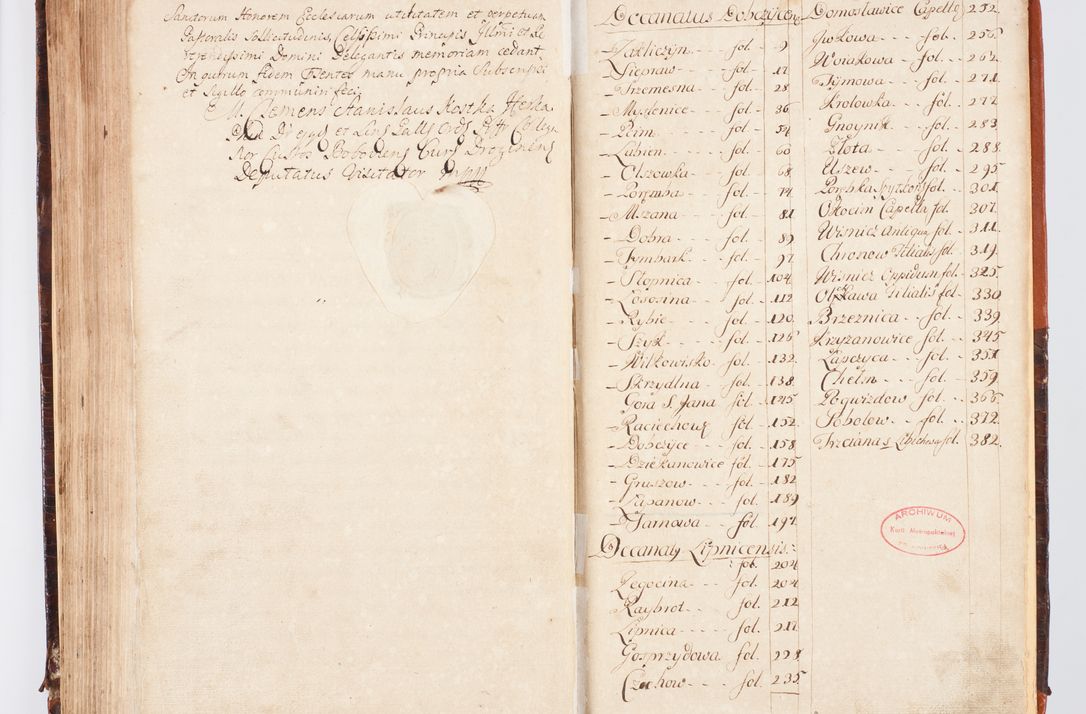 Sanctorum Honorem Ecclesiarum utilitatem et perpetuam
Pastoralis Sollicitudinis, Celsissimi Principis Illmi et Re
verendissimi Domini Delegantis memoriam cedant
In quorum fidem presentes manu propria Subscripsi
et Sigillo communiri feci
M. Clemens Stanislaus Kostka Herka
Custos Curs
Deputatus Visitator mpp
Decanatus Dobczycen
Zakliczyn fol. 9
Siepraw fol. 17
Trzemesna fol. 28
Myslenice fol. 36
Pcim fol. 54
Lubien fol. 60
Olszowka fol. 68
Poremba fol. 74
Mszana fol. 81
Dobra fol. 89
Tymbark fol. 97
Słopnica fol. 104
Łososina fol. 112
Rybie fol. 120
Szyk fol. 126
Wilkowisko fol. 132
Skrzydlna fol. 138
Gora S. Jana fol. 145
Raciechow fol. 152
Dobczyce fol. 158
Dziekanowice fol. 175
Gruszow fol. 182
Łapanow fol. 189
Tarnawa fol. 197
Decanaty Lipnicensis
fol. 204
Zegocina fol. 204
Raybrot fol. 212
Lipnica fol. 217
Gosprzydowa fol. 228
Czchow fol. 235
Domosławice Capella 252
Iwkowa fol. 256
Woiakowa fol. 262
Tymowa fol. 271
Krolowka fol. 277
Gnoynik fol. 283
Złota fol. 288
Uszew fol. 295
Porebka Spytkow fol. 301
Okocim Capella fol. 307
Wisnicz Antiqua fol. 311
Chronow Filialis fol. 319
Wisnicz Oppidum fol. 325
Filialis fol. 330
Brzeznica fol. 339
Krzyzanowice fol. 345
Łapczyca fol. 351
Chełm fol. 359
Pogwizdow fol. 366
Sobolow fol. 372
Trciana s. Libichowa fol. 382
ARCHIWUM
Kurii Metropolitalnej